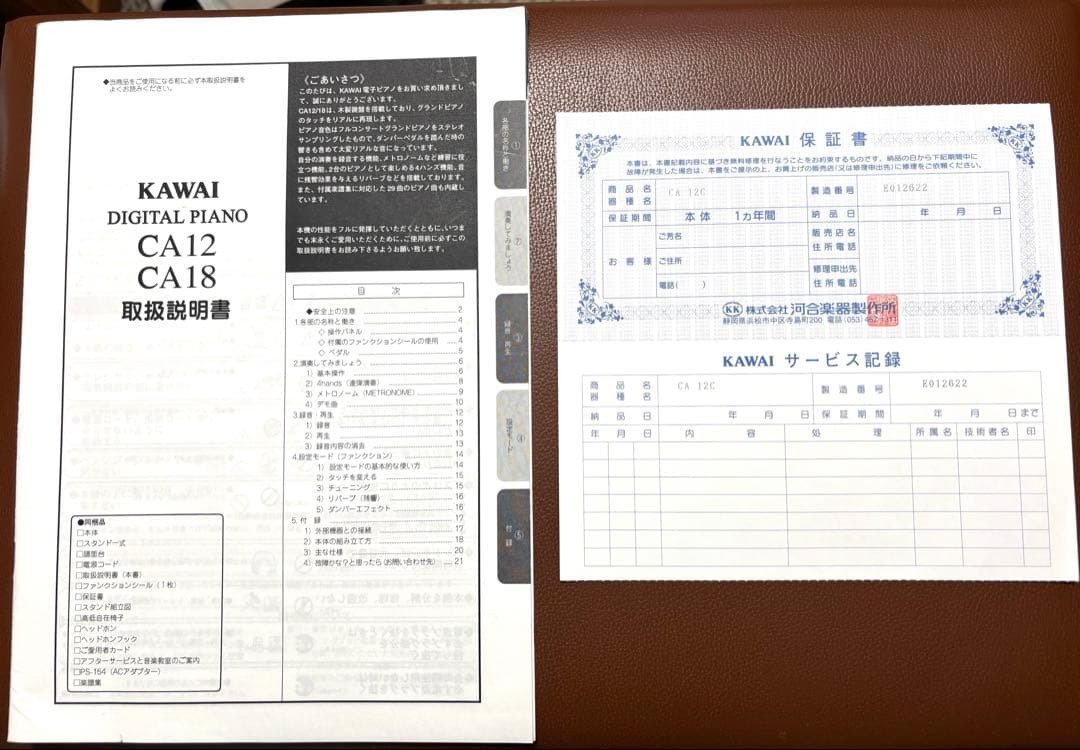 ◆当商品をご使用になる前に必ず本取扱説明書を
よくお読みください。
KAWAI
DIGITAL PIANO
CA12
CA18
取扱説明書
●同梱品
□本体
□スタンド一式
□譜面台
□電源コード
□取扱説明書（本書）
□ファンクションシール（1枚）
□保証書
□スタンド組立図
□高低自在椅子
□ヘッドホン
□ヘッドホンフック
□ご愛用者カード
□アフターサービスと音楽教室のご案内
□PS-154（ACアダプター）
□楽譜集
《ごあいさつ》
このたびは、KAWAI電子ピアノをお買い求め頂きまし
て、誠にありがとうございます。
CA12/18は、木製鍵盤を搭載しており、グランドピアノ
のタッチをリアルに再現します。
ピアノ音色はフルコンサートグランドピアノをステレオ
サンプリングしたもので、ダンパーペダルを踏んだ時の
響きも含めて大変リアルな音になっています。
自分の演奏を録音する機能、メトロノームなど練習に役
立つ機能、2台のピアノとして楽しめる4ハンズ機能、音
に残響効果を与えるリバーブなどを搭載しております。
また、付属楽譜集に対応した29曲のピアノ曲も内蔵し
ています。
本機の性能をフルに発揮していただくとともに、いつま
でも末永くご愛用いただくために、ご使用前に必ずこの
取扱説明書をお読み下さるようお願い致します。
目 次
◆安全上の注意 2
1.各部の名称と働き 4
◇ 操作パネル 4
◇ 付属のファンクションシールの使用 4
◇ ペダル 5
2.演奏してみましょう 6
1）基本操作 6
2）4hands（連弾演奏） 8
3）メトロノーム（METRONOME） 9
4）デモ曲 10
3.録音・再生 12
1）録音 12
2）再生 13
3）録音内容の消去 13
4.設定モード（ファンクション） 14
1）設定モードの基本的な使い方 14
2）タッチを変える 15
3）チューニング 15
4）リバーブ（残響） 16
5）ダンパーエフェクト 16
5.付 録 17
1）外部機器との接続 17
2）本体の組み立て方 18
3）主な仕様 20
4）故障かな？と思ったら（お問い合わせ先） 21
① 各部の名称と働き
② 演奏してみましょう
③ 録音・再生
④ 設定モード
⑤ 付録
KAWAI 保証書
本書は、本書記載内容に基づき無料修理を行なうことをお約束するものです。納品の日から下記期間中に
故障が発生した場合は、本書をご提示の上、お買上げの販売店（又は修理申出先）に修理をご依頼ください。
商品名
器種名 CA 12C 製造番号 E012622
保証期間 本体 1ヵ年間 納品日 年 月 日
お客様 ご芳名
ご住所
電話（ ）
販売店名
住所電話
修理申出先
住所電話
KK 株式会社 河合楽器製作所
静岡県浜松市中区寺島町200 電話(053)
KAWAI サービス記録
商品名
器種名 CA 12C 製造番号 E012622
納品日 年 月 日 保証期間 年 月 日まで
年 月 日 内容 処理 所属名 技術者名 印